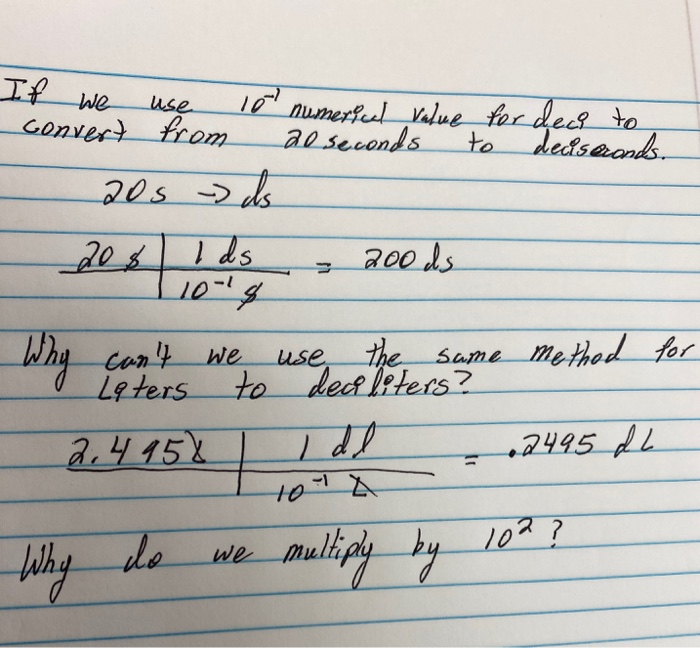 If we use 10⁻¹ numerical value for deci to
convert from 20 seconds to deciseconds.
20s → ds
20 s | 1 ds = 200 ds
10⁻¹ s
Why can't we use the same method for
Liters to deciliters?
2.495 L | 1 dl = .2495 dL
10⁻¹ L
Why do we multiply by 10² ?